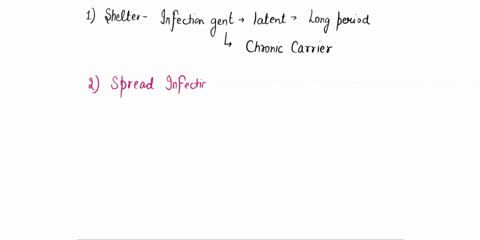 1) Shelter- Infection gent → latent → Long period
↳ Chronic Carrier
2) Spread Infectin